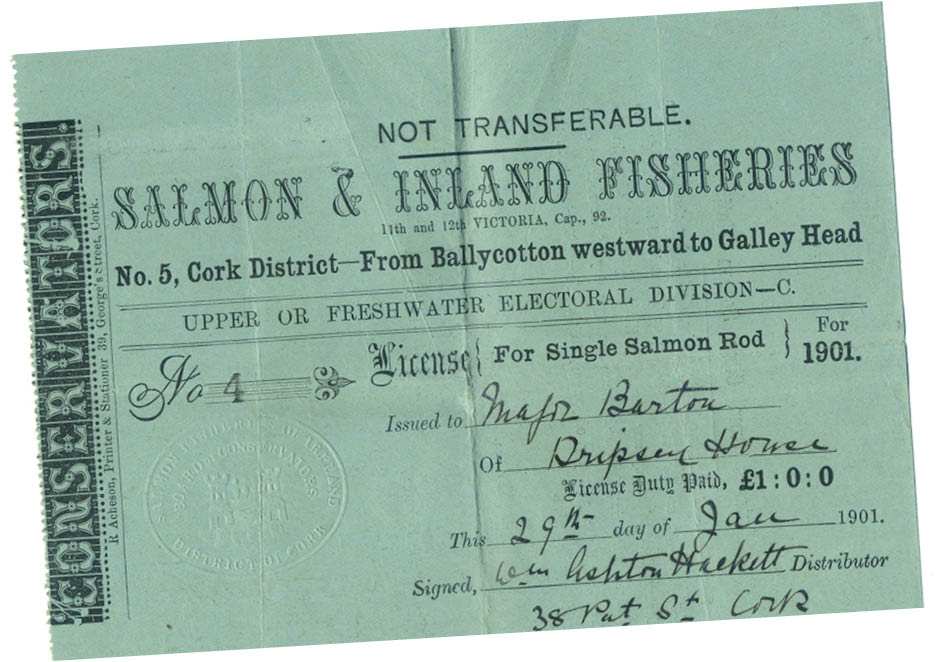 NOT TRANSFERABLE.
SALMON & INLAND FISHERIES
11th and 12th VICTORIA, Cap., 92.
No. 5, Cork District—From Ballycotton westward to Galley Head
UPPER OR FRESHWATER ELECTORAL DIVISION—C.
No 4
License { For Single Salmon Rod } For 1901.
Issued to Major Barton
Of Dripsey House
License Duty Paid, £1:0:0
This 29th day of Jan 1901.
Signed, Wm Ashton Hackett Distributor
38 Pat. St. Cork
CONSERVATORS.
R Acheson, Printer & Stationer 39, George's Street, Cork.
OF IRELAND
BOARD OF CONSERVATORS
DISTRICT OF CORK